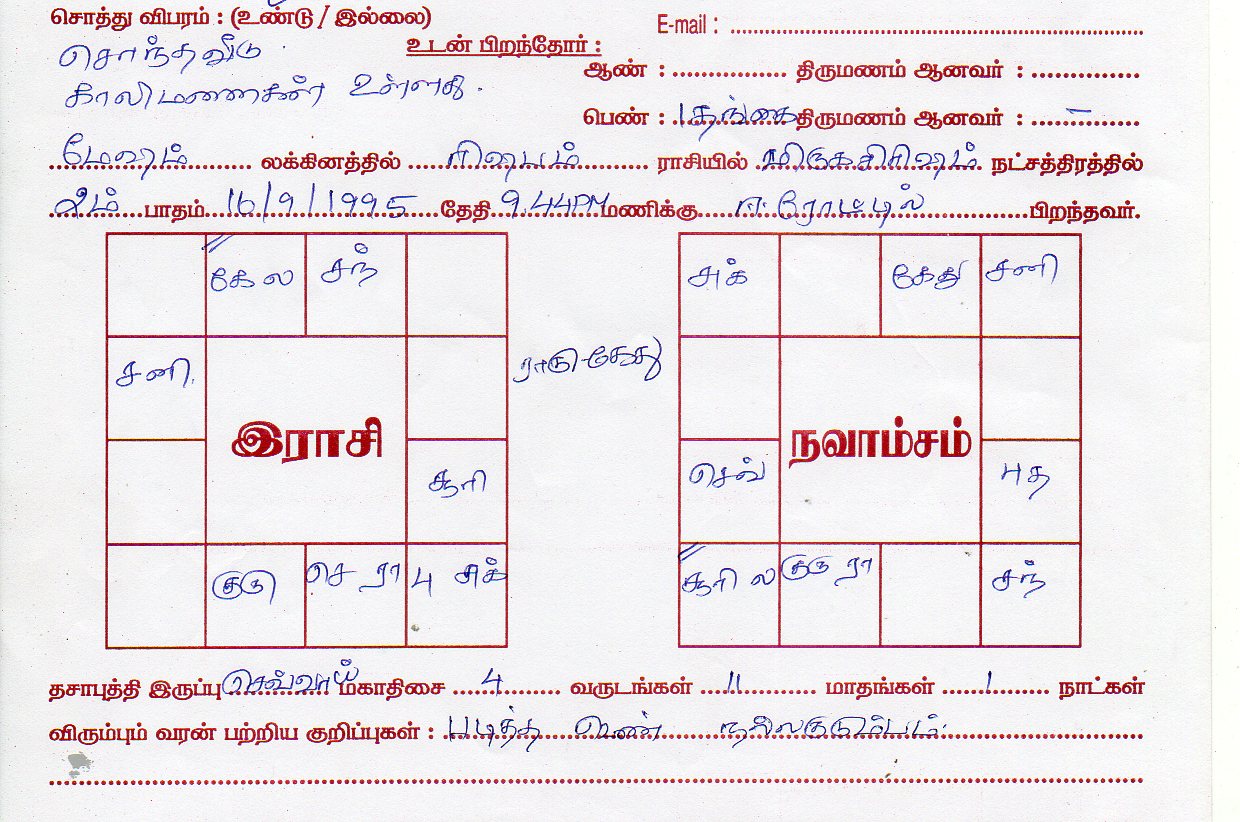 சொத்து விபரம் : (உண்டு / இல்லை)
E-mail :
சொந்தவீடு
உடன் பிறந்தோர் :
ஆண் : திருமணம் ஆனவர் :
காலிமனைகள் உள்ளது.
பெண் : 1 தங்கை திருமணம் ஆனவர் : –
மேஷம் லக்கினத்தில் ரிஷபம் ராசியில் மிருகசிரிஷம் நட்சத்திரத்தில்
2ம் பாதம் 16/9/1995 தேதி 9.44PM மணிக்கு ஈரோட்டில் பிறந்தவர்.
கே ல சந்
சனி
இராசி
சூரி
குரு செ ரா பு சுக்
ராகு-கேது
சுக் கேது சனி
நவாம்சம்
செவ் புத
சூரி ல குரு ரா சந்
தசாபுத்தி இருப்பு செவ்வாய் மகாதிசை 4 வருடங்கள் 11 மாதங்கள் 1 நாட்கள்
விரும்பும் வரன் பற்றிய குறிப்புகள் : படித்த பெண் நல்லகுடும்பம்.